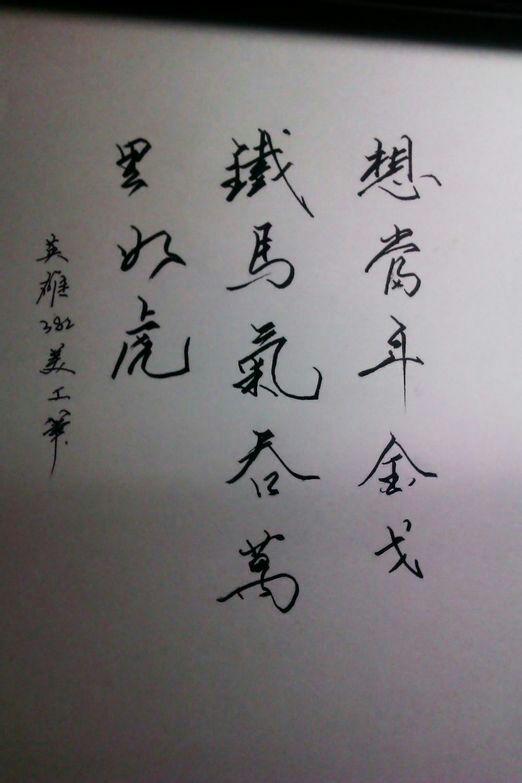 想當年金戈
鐵馬氣吞萬
里如虎
英雄382美工筆